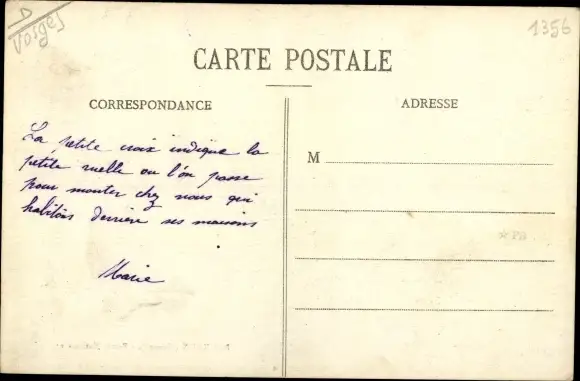 D
Vosges
1356
CARTE POSTALE
CORRESPONDANCE
ADRESSE
La petite croix indique la
petite ruelle ou l'on passe
pour monter chez nous qui
habitons derrière ses maisons
Marie
M
PB